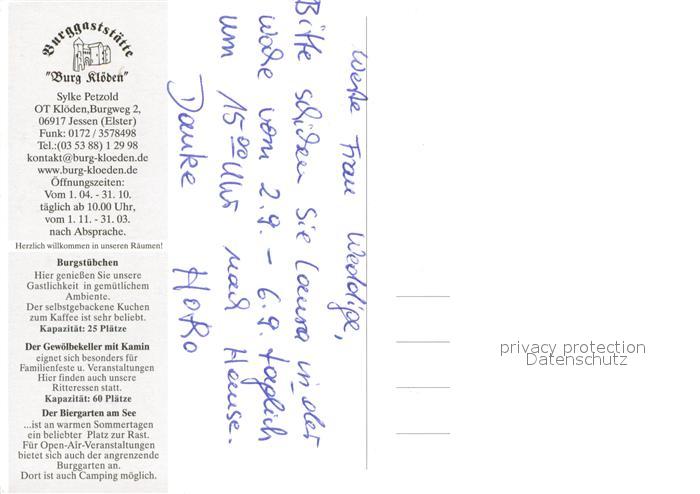 Burggaststätte
"Burg Klöden"
Sylke Petzold
OT Klöden,Burgweg 2,
06917 Jessen (Elster)
Funk: 0172 / 3578498
Tel.:(03 53 88) 1 29 98
kontakt@burg-kloeden.de
www.burg-kloeden.de
Öffnungszeiten:
Vom 1. 04. - 31. 10.
täglich ab 10.00 Uhr,
vom 1. 11. - 31. 03.
nach Absprache.
Herzlich willkommen in unseren Räumen!
Burgstübchen
Hier genießen Sie unsere
Gastlichkeit in gemütlichem
Ambiente.
Der selbstgebackene Kuchen
zum Kaffee ist sehr beliebt.
Kapazität: 25 Plätze
Der Gewölbekeller mit Kamin
eignet sich besonders für
Familienfeste u. Veranstaltungen
Hier finden auch unsere
Ritteressen statt.
Kapazität: 60 Plätze
Der Biergarten am See
...ist an warmen Sommertagen
ein beliebter Platz zur Rast.
Für Open-Air-Veranstaltungen
bietet sich auch der angrenzende
Burggarten an.
Dort ist auch Camping möglich.
Werte Frau Weddige,
Bitte schicken Sie Laura in der
Woche vom 2.9. - 6.9. täglich
um 15 00 Uhr nach Hause.
Danke
privacy protection
Datenschutz